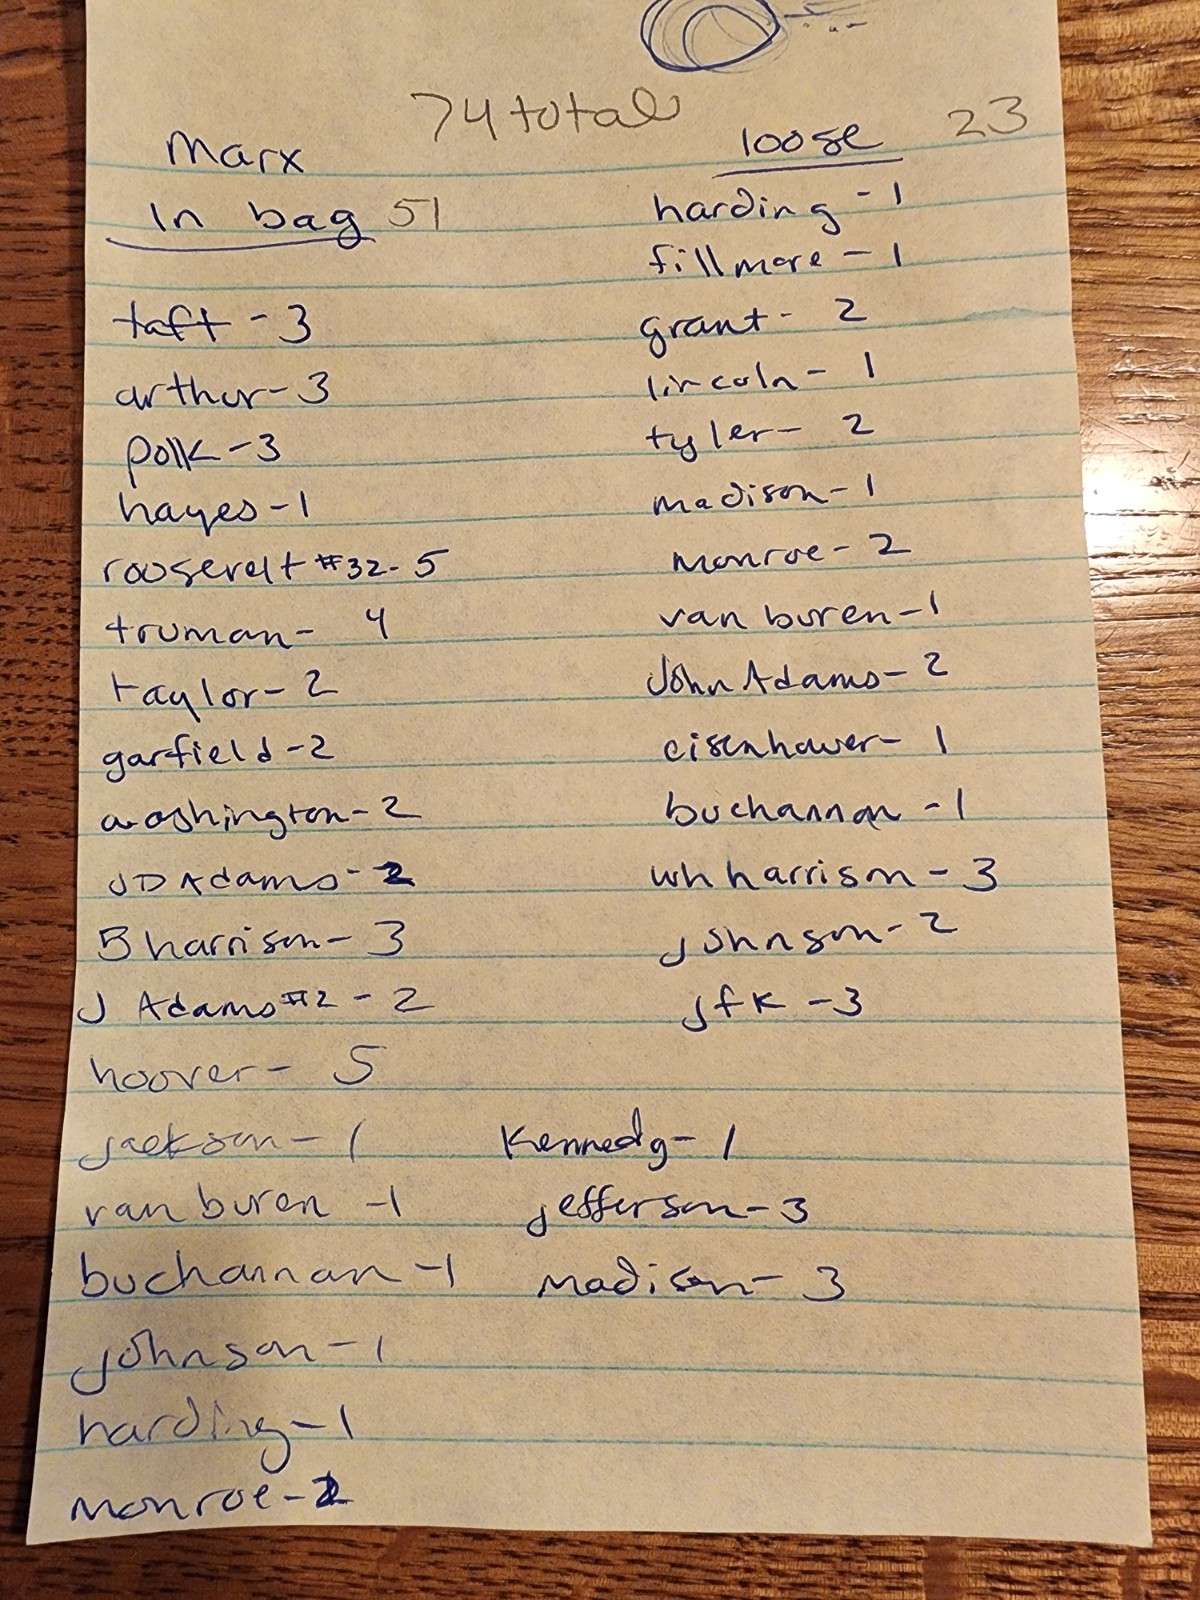 74 total
Marx
In bag 51
taft - 3
arthur - 3
polk - 3
hayes - 1
roosevelt #32 - 5
truman - 4
taylor - 2
garfield - 2
washington - 2
JD Adams - 2
B harrison - 3
J Adams #2 - 2
hoover - 5
jackson - 1
van buren - 1
buchannan - 1
johnson - 1
harding - 1
monroe - 2
Kennedy - 1
jefferson - 3
madison - 3
loose 23
harding - 1
fillmore - 1
grant - 2
lincoln - 1
tyler - 2
madison - 1
monroe - 2
van buren - 1
John Adams - 2
eisenhower - 1
buchannan - 1
wh harrison - 3
johnson - 2
jfk - 3